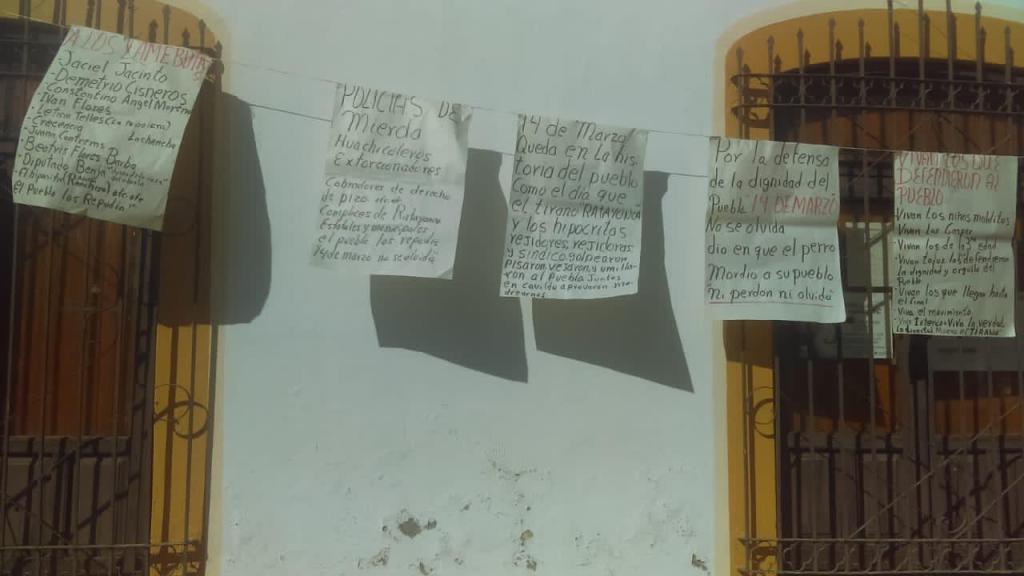 A LOS
Jaciel Jacinto
- Demetrio Cisneros
- Constentino Angel
- Ivan Flores
- Leina Telles
- Juana Contreras
- Beatriz Garces
- Diputado Benja
el Pueblo los Repudia
POLICIAS DE
Mierda
Huachicoleros
Extorcionadores
Cobradores de derecho
de pizo
Complices de Ratayonca
Estatales y municipales
el pueblo los repudia
14 de marzo no se olvida
14 de Marzo!
Queda en la his
toria del pueblo
Como el dia que
el tirano RATAYONCA
y los hipocritas
rejidores, rejidoras
y sindico golpearon
Pisaron, vejaron, y umilla-
ron al pueblo Juntos
en cavildo aprovaron
Por la defensa
de la dignidad del
Pueblo 14 DE MARZO
No se olvida
dia en que el perro
Mordio a su pueblo
Ni perdon ni olvido
VIVAN LOS QUE
DEFENDIERON AL
PUEBLO
Vivan los niños malditos
Vivan los
- Vivan los de la 3ª edad
- Vivan todos los defendieron
la dignidad y orgullo del
Pueblo
- Vivan los que llegan hasta
el final
Viva el movimiento
- Viva la verdad